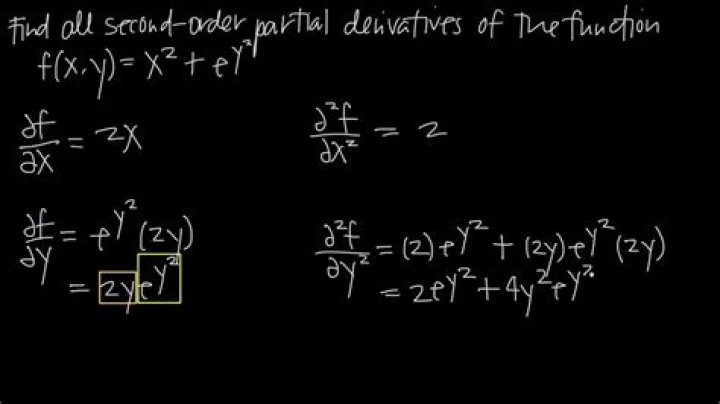 Find all second-order partial derivatives of the function
f(x,y) = x² + e^y²
∂f/∂x = 2x
∂²f/∂x² = 2
∂f/∂y = e^y² (2y)
= 2y e^y²
∂²f/∂y² = (2) e^y² + (2y) e^y² (2y)
= 2e^y² + 4y² e^y²